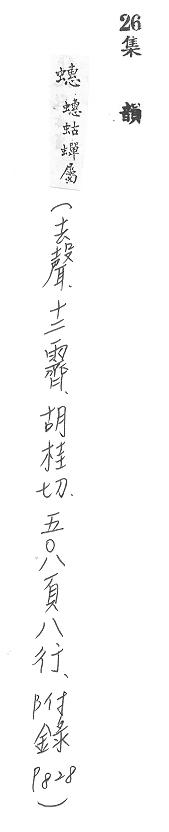 26集 韻
蟪 蟪蛄蟬屬(去聲、十二霽、胡桂切、五〇八頁八行、附錄P828)